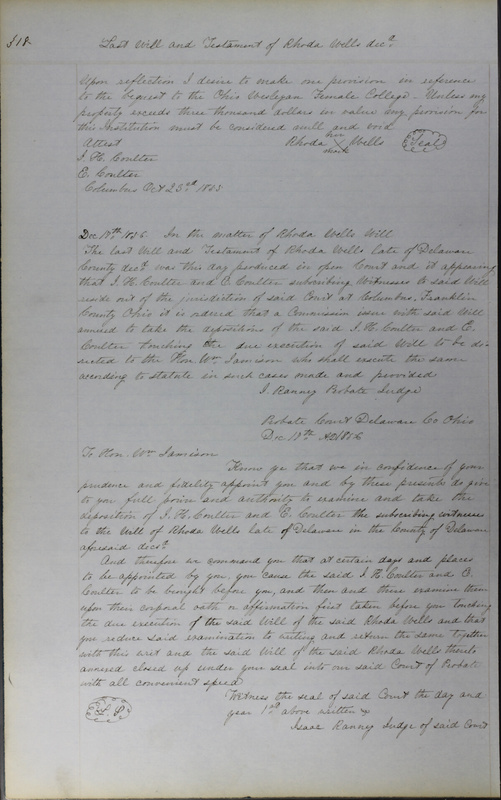 318
Last Will and Testament of Rhoda Wells decd.
Upon reflection I desire to make one provision in reference
to the bequest to the Ohio Wesleyan Female College - Unless my
property exceeds three thousand dollars in value my provision for
this Institution must be considered null and void
Attest Rhoda her X mark Wells (Seal)
I. H. Coulter
E. Coulter
Columbus Oct 25th 1855
Dec 18th 1856 In the matter of Rhoda Wells Will
The last Will and Testament of Rhoda Wells late of Delaware
County decd. was this day produced in open Court and it appearing
that I. H. Coulter and E. Coulter subscribing Witnesses to said Will
reside out of the jurisdiction of said Court at Columbus, Franklin
County Ohio it is ordered that a Commission issue with said Will
annexed to take the depositions of the said I. H. Coulter and E.
Coulter touching the due execution of said Will to be di-
rected to the Hon. Wm. Jamison who shall execute the same
according to statute in such cases made and provided
I. Ranney Probate Judge
Probate Court Delaware Co Ohio
Dec 18th AD 1856
To Hon. Wm Jamison
Know ye that we in confidence of your
prudence and fidelity appoint you and by these presents do give
to you full power and authority to examine and take the
deposition of I. H. Coulter and E. Coulter the subscribing witnesses
to the Will of Rhoda Wells late of Delaware in the County of Delaware
aforesaid decd.
And therefore we command you that at certain days and places
to be appointed by you, you cause the said I. H. Coulter and E.
Coulter to be brought before you, and then and there examine them
upon their corporal oath or affirmation first taken before you touching
the due execution of the said Will of the said Rhoda Wells and that
you reduce said examination to writing and return the same together
with this writ and the said Will of the said Rhoda Wells thereto
annexed closed up under your seal into our said Court of Probate
with all convenient speed
Witness the seal of said Court the day and
year 1st above written
(L. S.)
Isaac Ranney Judge of said Court